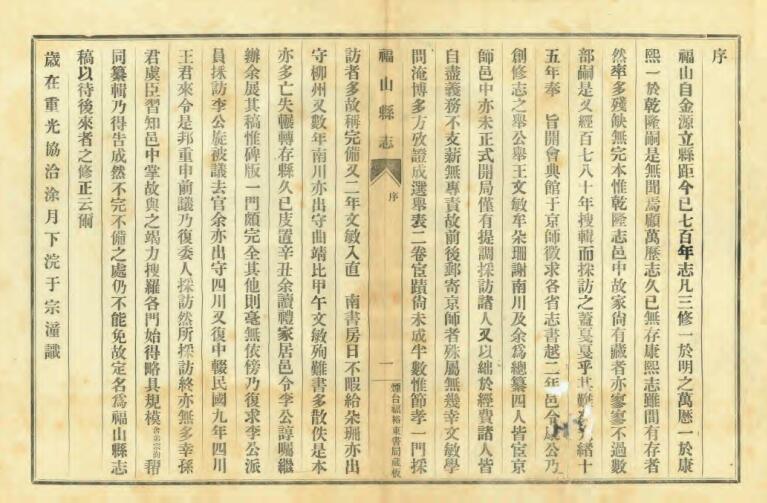 序
福山自金源立縣距今已七百年志凡三修一於明之萬歷一於康
熙一於乾隆嗣是無聞焉顧萬歷志久已無存康熙志雖間有存者
然率多殘缺無完本惟乾隆志邑中故家尚有藏者亦寥寥不過數
部嗣是又經百七八十年搜輯而採訪之蓋戛戛乎其難 光緒十
五年奉 旨開會典館于京師徵求各省志書越二年邑令 公乃
創修志之舉公舉王文敏牟朵珊謝南川及余為總纂四人皆宦京
師邑中亦未正式開局僅有提調採訪諸人又以絀於經費諸人皆
自盡義務不支薪無專責故前後郵寄京師者殊屬無幾幸文敏學
問淹博多方攷證成選舉表二卷宦蹟尚未成半數惟節孝一門採
福山縣志 序 一 煙台福裕東書局藏板
訪者多故稱完備又二年文敏入直 南書房日不暇給朵珊亦出
守柳州又數年南川亦出守曲靖比甲午文敏殉難書多散佚是本
亦多亡失輾轉存縣久已庋置辛丑余讀禮家居邑令李公諄囑繼
辦余展其稿惟碑版一門頗完全其他則毫無依傍乃復求李公派
員採訪李公旋被議去官余亦出守四川又復中輟民國九年四川
王君來令是邦重申前議乃復委人採訪然所採訪終亦無多幸孫
君虞臣習知邑中掌故與之竭力搜羅各門始得略具規模舍弟宗 潛
同纂輯乃得告成然不完不備之處仍不能免故定名為福山縣志
稿以待後來者之修正云爾
歲在重光協洽涂月下浣于宗潼識